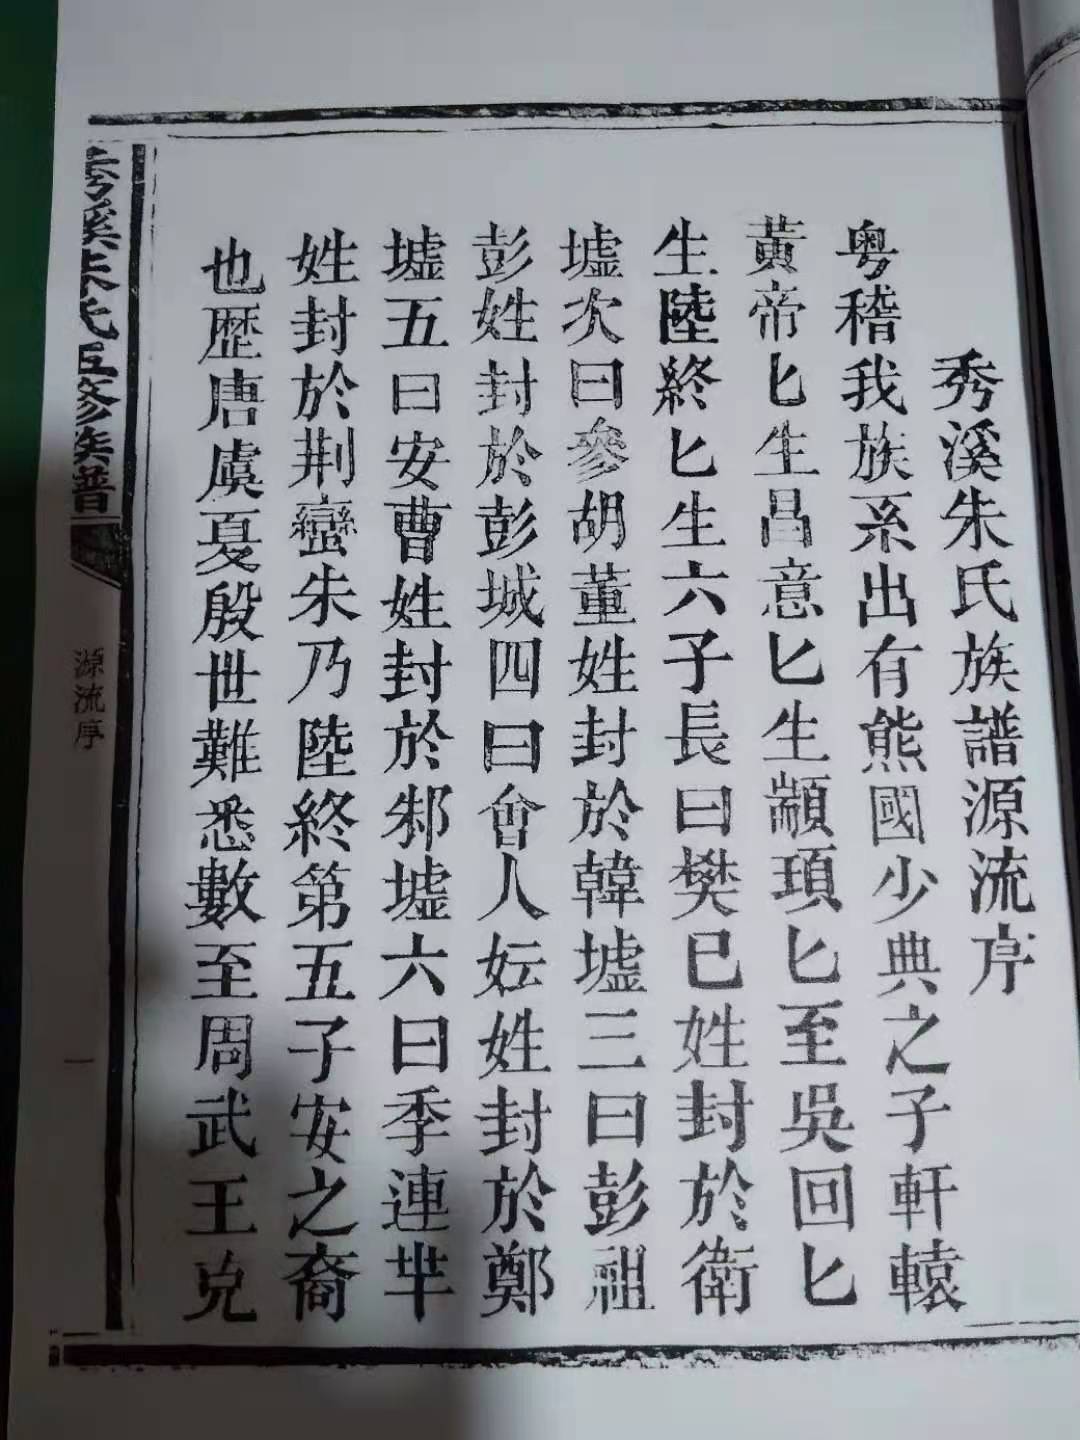 秀溪朱氏族譜源流序
粤稽我族系出有熊國少典之子軒轅
黃帝匕生昌意匕生顓頊匕至吳回匕
生陸終匕生六子長曰樊已姓封於衛
墟次曰參胡董姓封於韓墟三曰彭祖
彭姓封於彭城四曰會人妘姓封於鄭
墟五曰安曹姓封於邾墟六曰季連芈
姓封於荆蠻朱乃陸終第五子安之裔
也歷唐虞夏殷世難悉數至周武王克
秀溪朱氏五修族譜
源流序
一